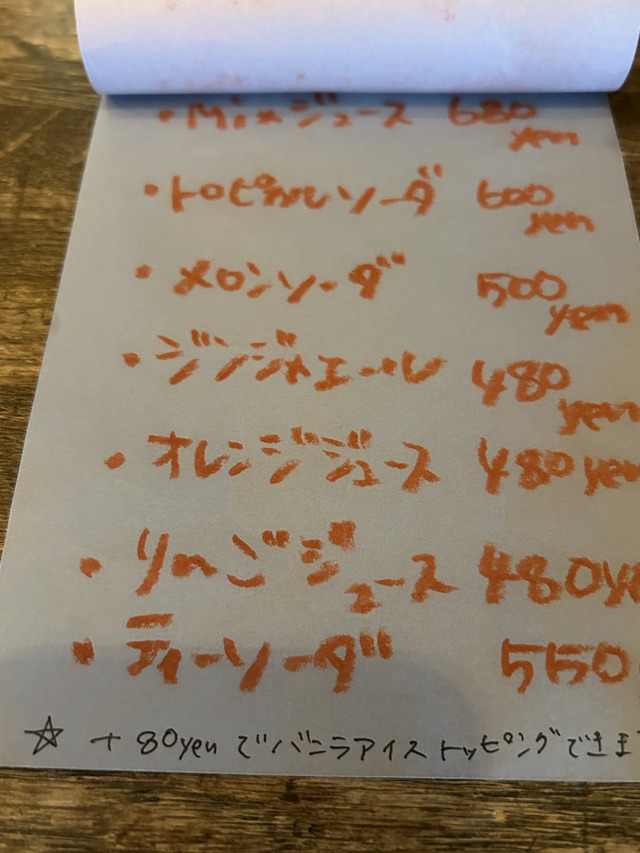 ・Mixジュース 680 yen
・トロピカルソーダ 600 yen
・メロンソーダ 500 yen
・ジンジャエール 480 yen
・オレンジジュース 480 yen
・りんごジュース 480ye
・ティーソーダ 550
☆ + 80yen でバニラアイストッピングできま